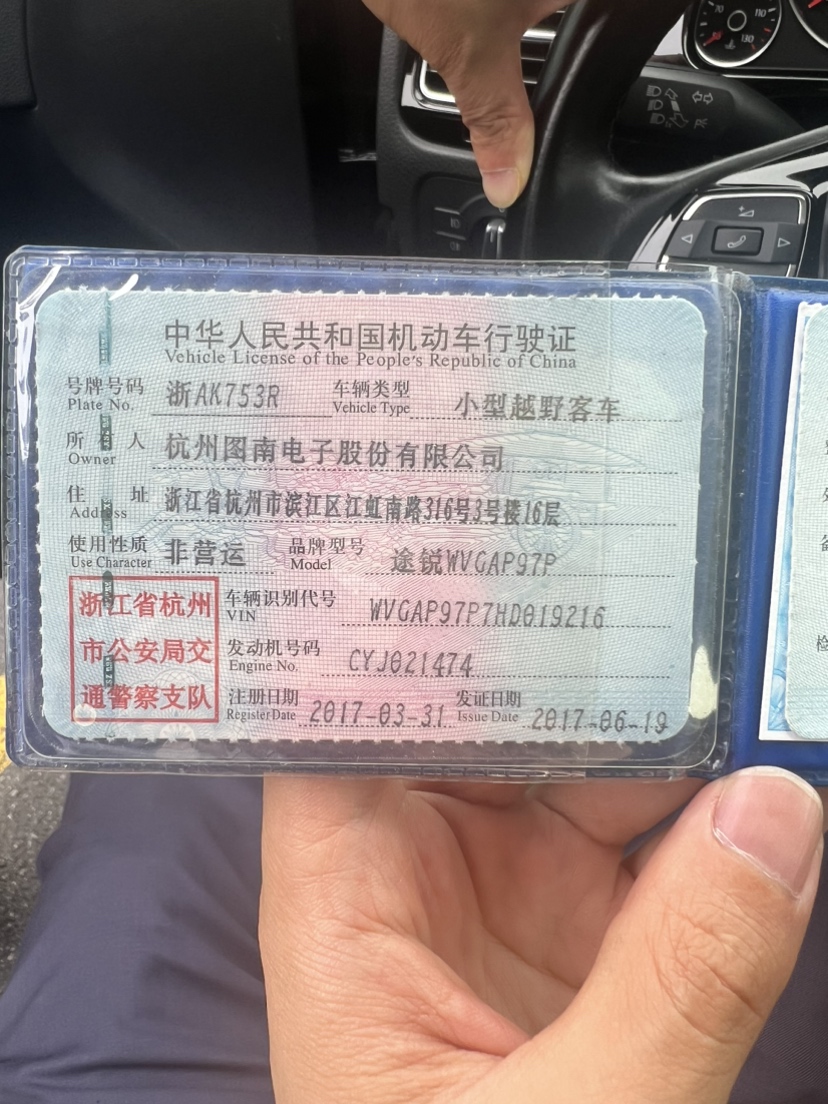 中华人民共和国机动车行驶证
Vehicle License of the People's Republic of China
号牌号码 浙AK753R 车辆类型 小型越野客车
Plate No. Vehicle Type
所有人 杭州图南电子股份有限公司
Owner
住址 浙江省杭州市滨江区江虹南路316号3号楼16层
Address
使用性质 非营运 品牌型号 途锐WVGAP97P
Use Character Model
浙江省杭州
市公安局交
通警察支队
车辆识别代号 WVGAP97P7HD019216
VIN
发动机号码 CYJ021474
Engine No.
注册日期 2017-03-31 发证日期 2017-06-19
Register Date Issue Date
70
110
130